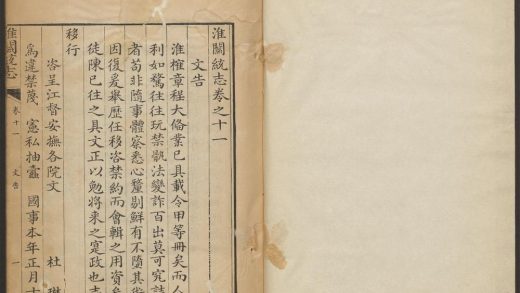 淮關統志卷之十一
文告
淮榷章程大備業已具載令甲等冊矣而今
利如鶩往往玩禁骩法變詐百出莫可究詰
者苟非隨事體察悉心釐剔鮮有不墮其術
因復爰舉歷任移咨禁約而會輯之用資
徒陳已往之具文正以勉將來之寔政也志
移行
咨呈江督安撫各院文 杜琳
為違禁蔑憲私抽蠹國事本年正月十
淮關統志 卷十一 文告 一